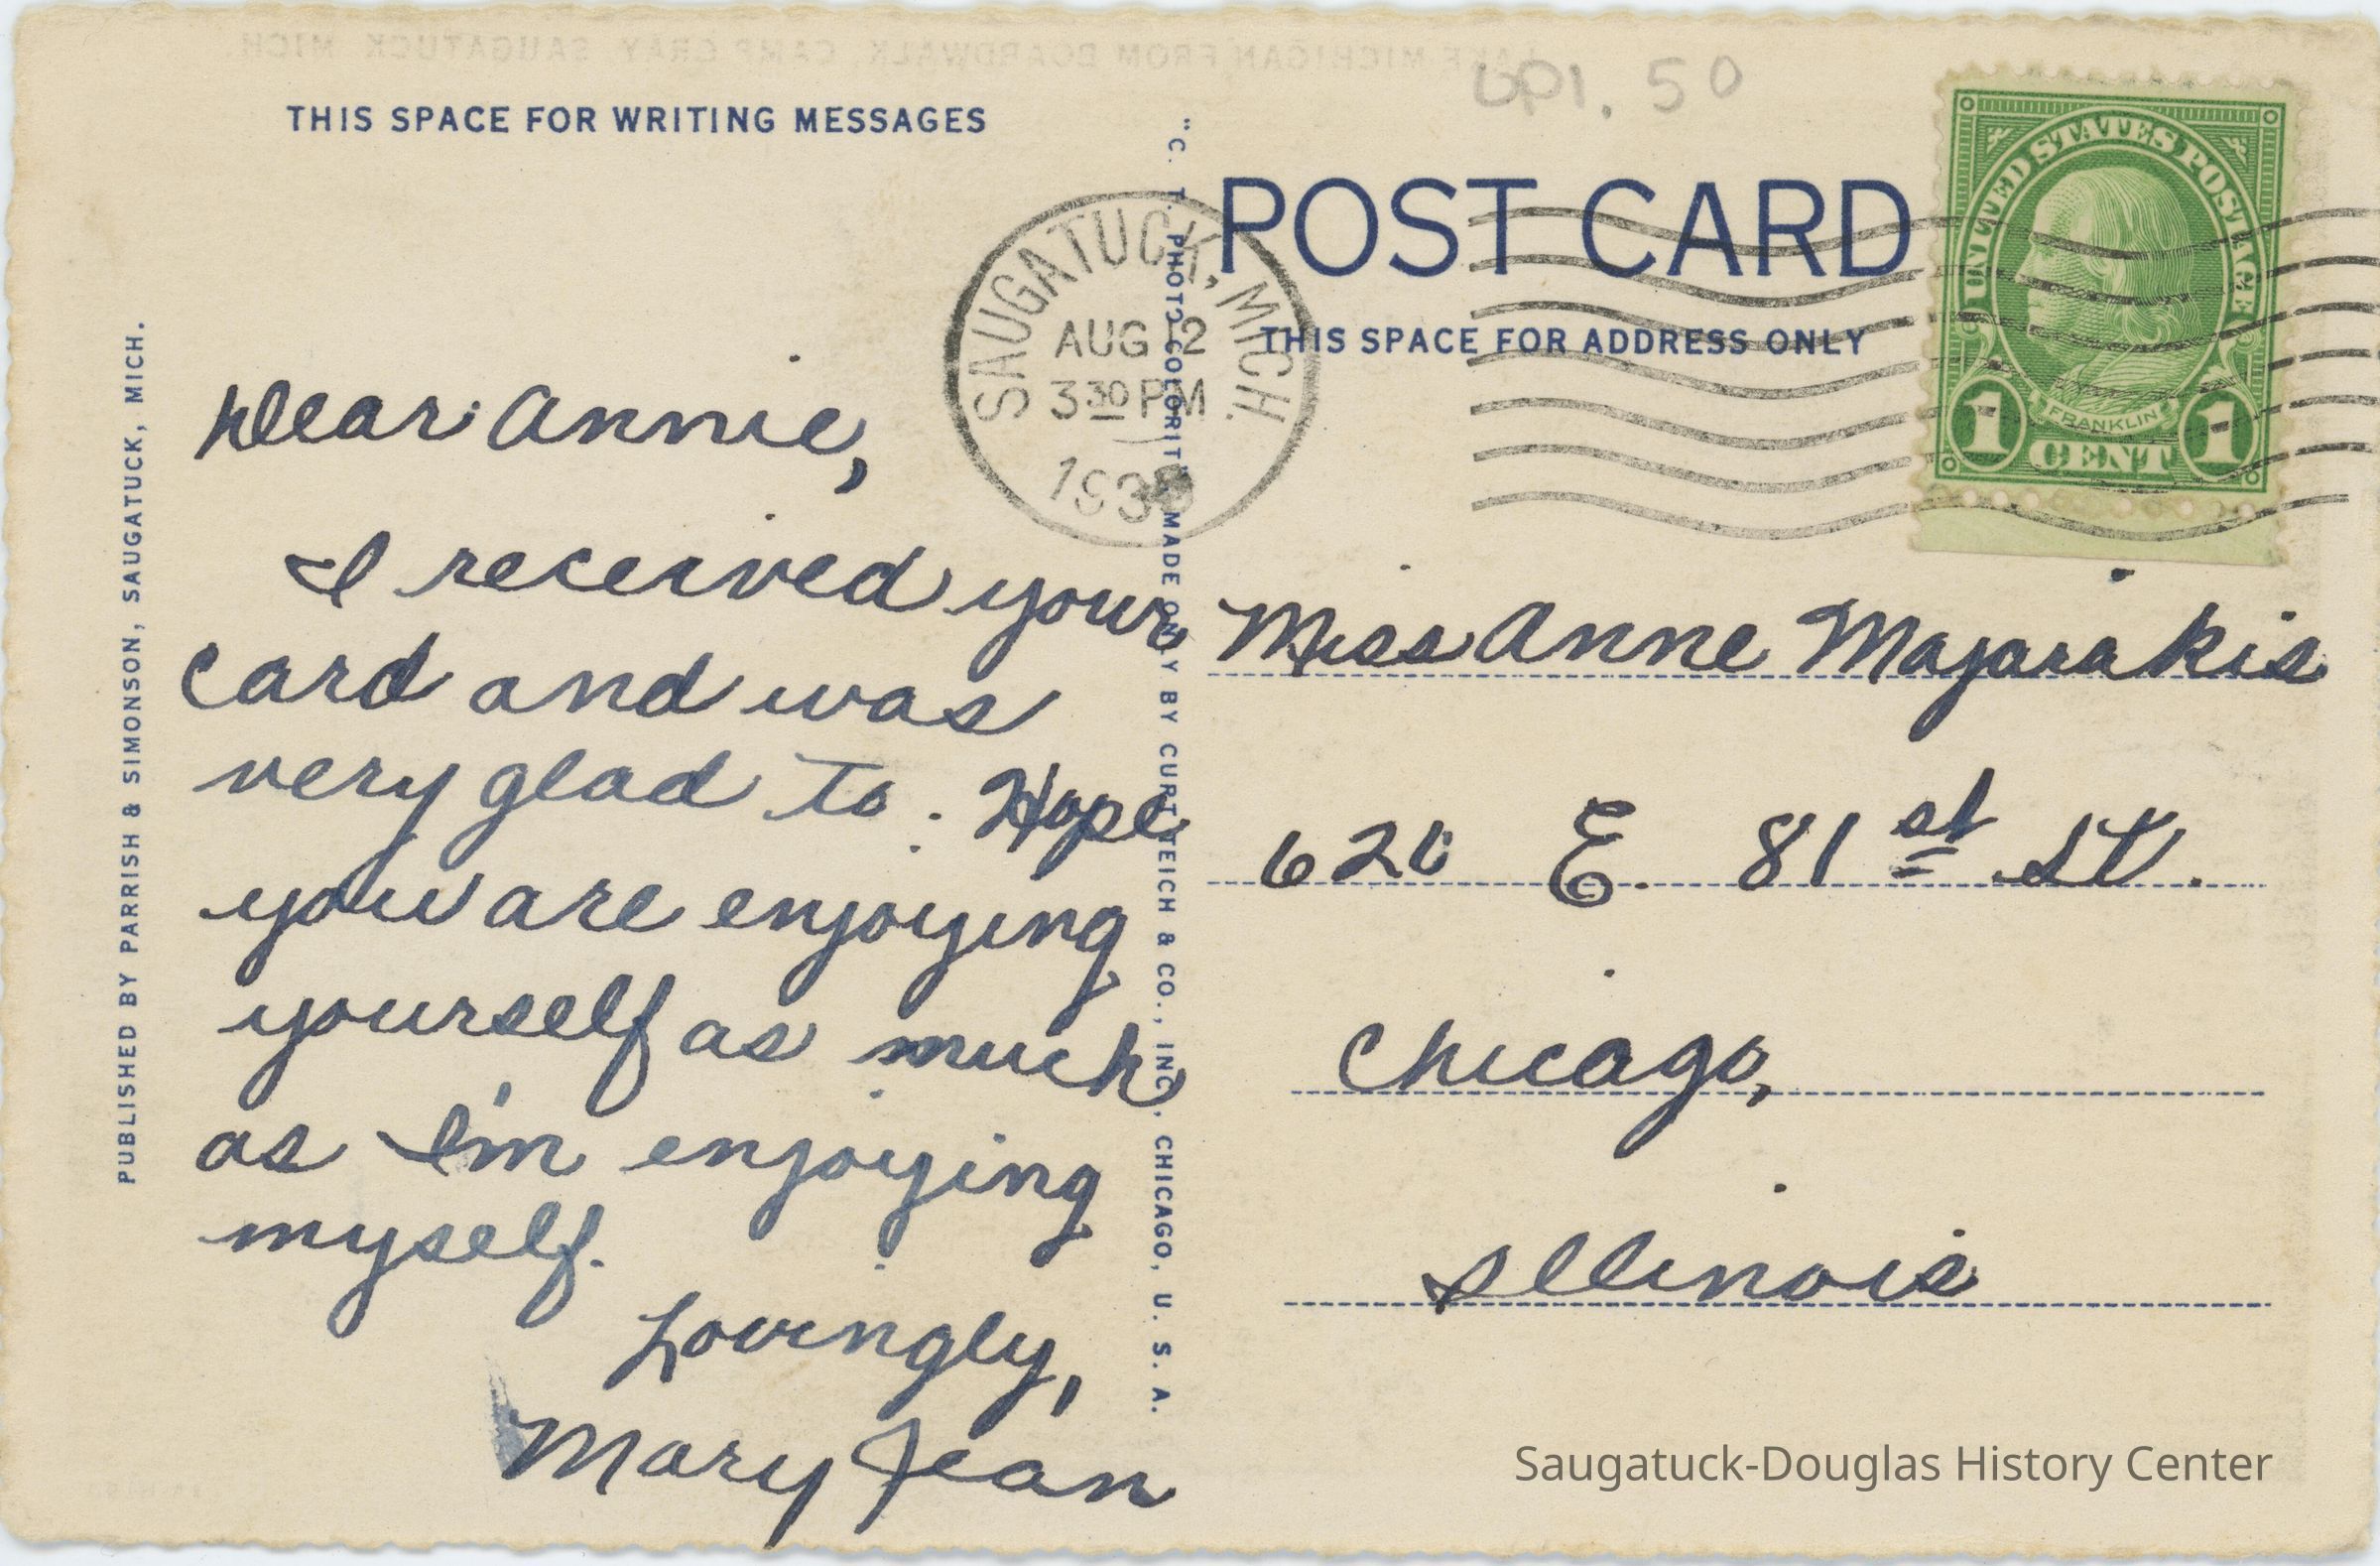 LAKE MICHIGAN FROM BOARDWALK, CAMP GRAY, SAUGATUCK, MICH.
50
THIS SPACE FOR WRITING MESSAGES
POST CARD
THIS SPACE FOR ADDRESS ONLY
SAUGATUCK, MICH.
AUG 12
3 30 PM
UNITED STATES POSTAGE
FRANKLIN
1 CENT 1
PUBLISHED BY PARRISH & SIMONSON, SAUGATUCK, MICH.
Dear Annie,
I received your
card and was
very glad to. Hope
you are enjoying
yourself as much
as I'm enjoying
myself.
Lovingly,
Mary Jean
"C. T. PHOTO COLORIT" MADE ONLY BY CURT TEICH & CO., INC., CHICAGO, U. S. A.
Miss Anne Majarakis
620 E. 81st St.
Chicago,
Illinois
Saugatuck-Douglas History Center